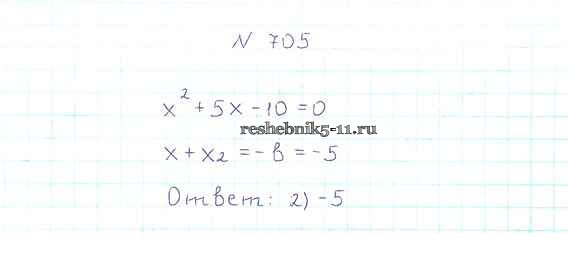 N 705
x² + 5x - 10 = 0
reshebnik5-11.ru
x + x₂ = - в = - 5
Ответ: 2) - 5